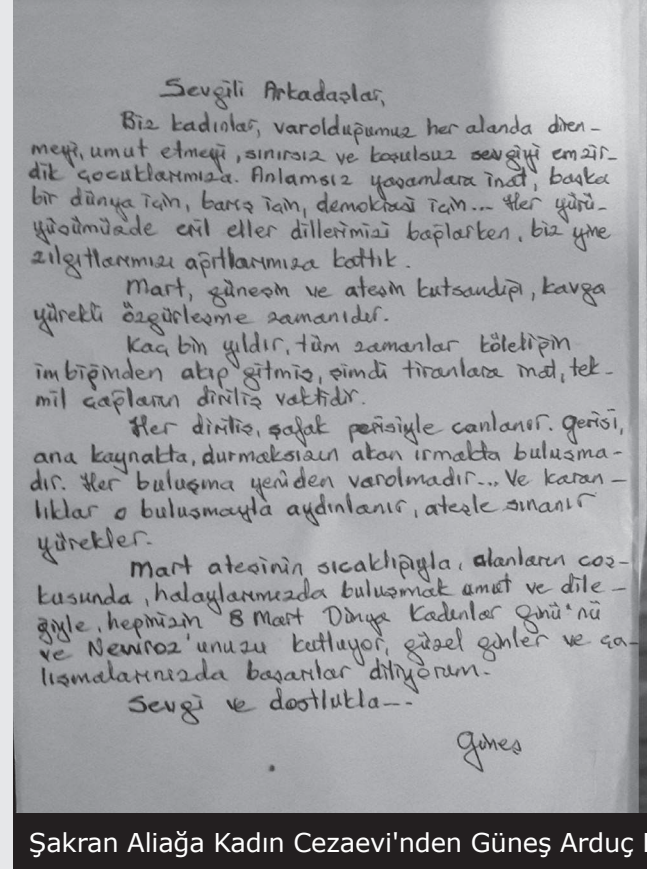 Sevgili Arkadaşlar,
Biz kadınlar, varolduğumuz her alanda diren-
meyi, umut etmeyi, sınırsız ve koşulsuz sevgiyi emzir-
dik çocuklarımıza. Anlamsız yaşamlara inat, başka
bir dünya için, barış için, demokrasi için... Her yürü-
yüşümüzde eril eller dillerimizi bağlarken, biz yine
zılgıtlarımızı ağıtlarımıza kattık.
Mart, güneşin ve ateşin kutsandığı, kavga
yürekli özgürleşme zamanıdır.
Kaç bin yıldır, tüm zamanlar köleliğin
imbiğinden akıp gitmiş, şimdi tiranlara inat, tek-
mil çağların diriliş vaktidir.
Her diriliş, şafak perisiyle canlanır. Gerisi,
ana kaynakta, durmaksızın akan ırmakta buluşma-
dır. Her buluşma yeniden varolmadır... Ve karan-
lıklar o buluşmayla aydınlanır, ateşle sınanır
yürekler.
Mart ateşinin sıcaklığıyla, alanların coş-
kusunda, halaylarımızda buluşmak umut ve dile-
ğiyle, hepinizin 8 Mart Dünya Kadınlar Günü'nü
ve Newroz'unuzu kutluyor, güzel günler ve ça-
lışmalarınızda başarılar diliyorum.
Sevgi ve dostlukla--
Güneş
Şakran Aliağa Kadın Cezaevi'nden Güneş Arduç